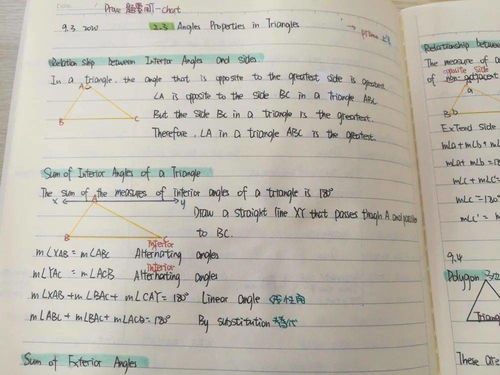 Prove 題要用T-chart
9.3 2021
2.3 Angles Properties in Triangles
→ prime
Relationship between Interior Angles and sides
In a triangle, the angle that is opposite to the greatest side is greatest
A
B
C
∠A is opposite to the side BC in a triangle ABC
But the side BC in a triangle is the greatest.
Therefore, ∠A in a triangle ABC is the greatest.
Sum of Interior Angles of a Triangle
The sum of the measures of interior angles of a triangle is 180°
x A y
B
C
Draw a straight line XY that passes though A and
to BC.
m∠XAB = m∠ABC Alternating interior angles
m∠YAC = m∠ACB Alternating interior angles
m∠XAB + m∠BAC + m∠CAY = 180° Linear angle
m∠ABC + m∠BAC + m∠ACB = 180° By substitution 替代
Sum of Exterior Angles
Relationship betwee
The measure of a
opposite side
of non-adjacent
a
B b
Extend side
m∠a + m∠b + m∠
m∠a + m∠b = 18
m∠c + m∠c' =
m∠c = 180°
m∠c' =
9.4
Polygon
Triang
These are